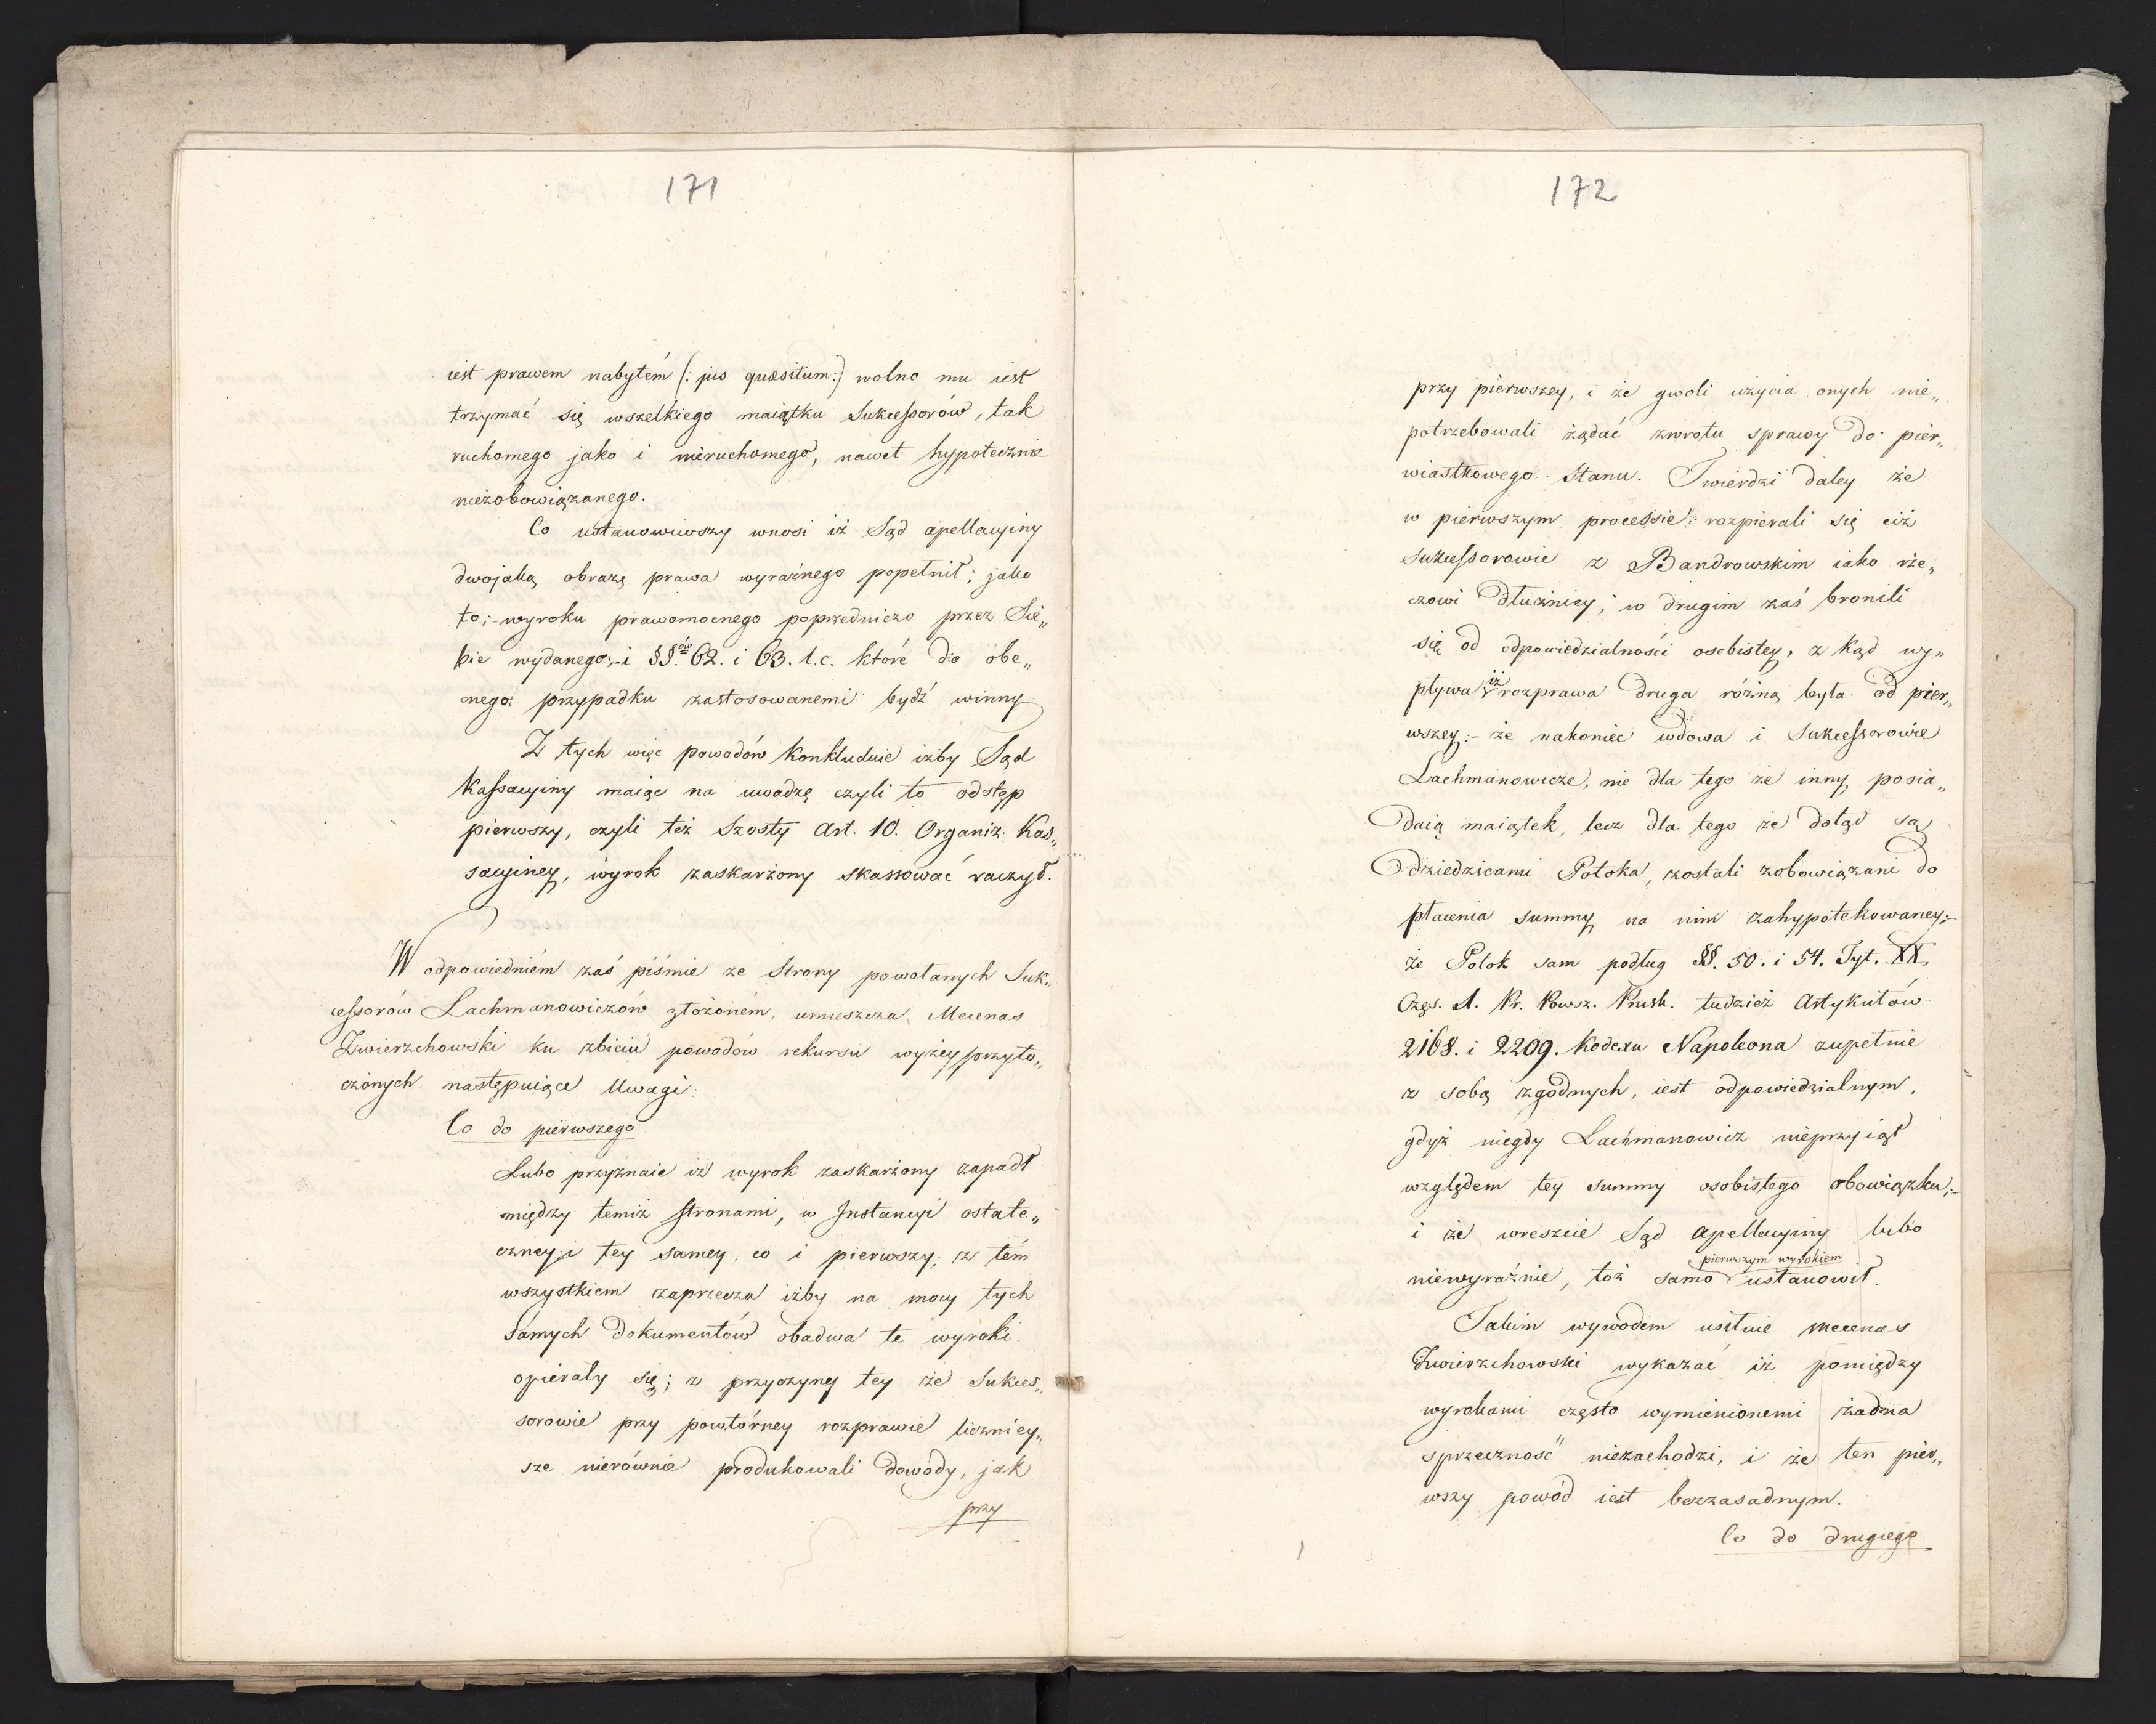 171
iest prawem nabytém (: jus quæsitum:) wolno mu iest
trzymać się wszelkiego maiątku Sukcessorów, tak
ruchomego jako i nieruchomego, nawet hypotecznie
niezobowiązanego.
Co ustanowiwszy wnosi iż Sąd apellacyiny
dwojaką obrazę prawa wyraźnego popełnił; jako
to;- wyroku prawomocnego poprzedniczo przez Sie„
bie wydanego;- i §§.ów 62. i 63. l.c. które do obe„
cnego przypadku zastosowanemi bydź winny.
Z tych więc powodów konkluduie iżby Sąd
Kassacyiny maiąc na uwadzę czyli to odstęp
pierwszy, czyli też Szosty Art. 10. Organiz: Kas„
sacyiney, wyrok zaskarżony skassować raczył.
W odpowiedniém zaś piśmie ze Strony powołanych Suk„
cessorów Lachmanowiczów złożoném, umieszcza Mecenas
Zwierzchowski ku zbiciu powodów rekursu wyżey przyto„
czonych następuiące Uwagi:
Co do pierwszego
Lubo przyznaie iż wyrok zaskarżony zapadł
między temiż stronami, w Instancyi ostate„
czney i tey samey co i pierwszy; z tém
wszystkiem zaprzecza iżby na mocy tych
samych dokumentów obadwa te wyroki
opierały się; z przyczyny tey że Sukces„
sorowie przy powtórney rozprawie liczniey„
sze nierównie produkowali dowody, jak
przy
172
przy pierwszey, i że gwoli użycia onych nie„
potrzebowali żądać zwrotu sprawy do pier„
wiastkowego Stanu. Twierdzi daley że
w pierwszym processie rozpierali się ciż
Sukcessorowie z Bandrowskim iako rze„
czowi dłużnicy; w drugim zaś bronili
się od odpowiedzialności osobistey, z kąd wy„
pływa iż rozprawa druga różną była od pier„
wszey;- że nakoniec wdowa i Sukcessorowie
Lachmanowicze, nie dla tego że inny posia„
daią maiątek, lecz dla tego że dotąd są
dziedzicami Potoka, zostali zobowiązani do
płacenia summy na nim zahypotekowaney;-
że Potok sam podług §§. 50. i 54. Tyt. XX,
Częs. 1. Pr. Powsz. Prusk. tudzież Artykułów
2168. i 2209. Kodexu Napoleona zupełnie
z sobą zgodnych, iest odpowiedzialnym,
gdyż niegdy Lachmanowicz nieprzyiął
względem tey summy osobistego obowiązku;-
i że wreszcie Sąd apellacyiny lubo
niewyraźnie, toż samo pierwszym wyrokiem ustanowił.
Takim wywodem usiłuie Mecenas
Zwierzchowski wykazać iż pomiędzy
wyrokami często wymienionemi żadna
sprzeczność niezachodzi, i że ten pier„
wszy powód iest bezzasadnym.
Co do drugiego